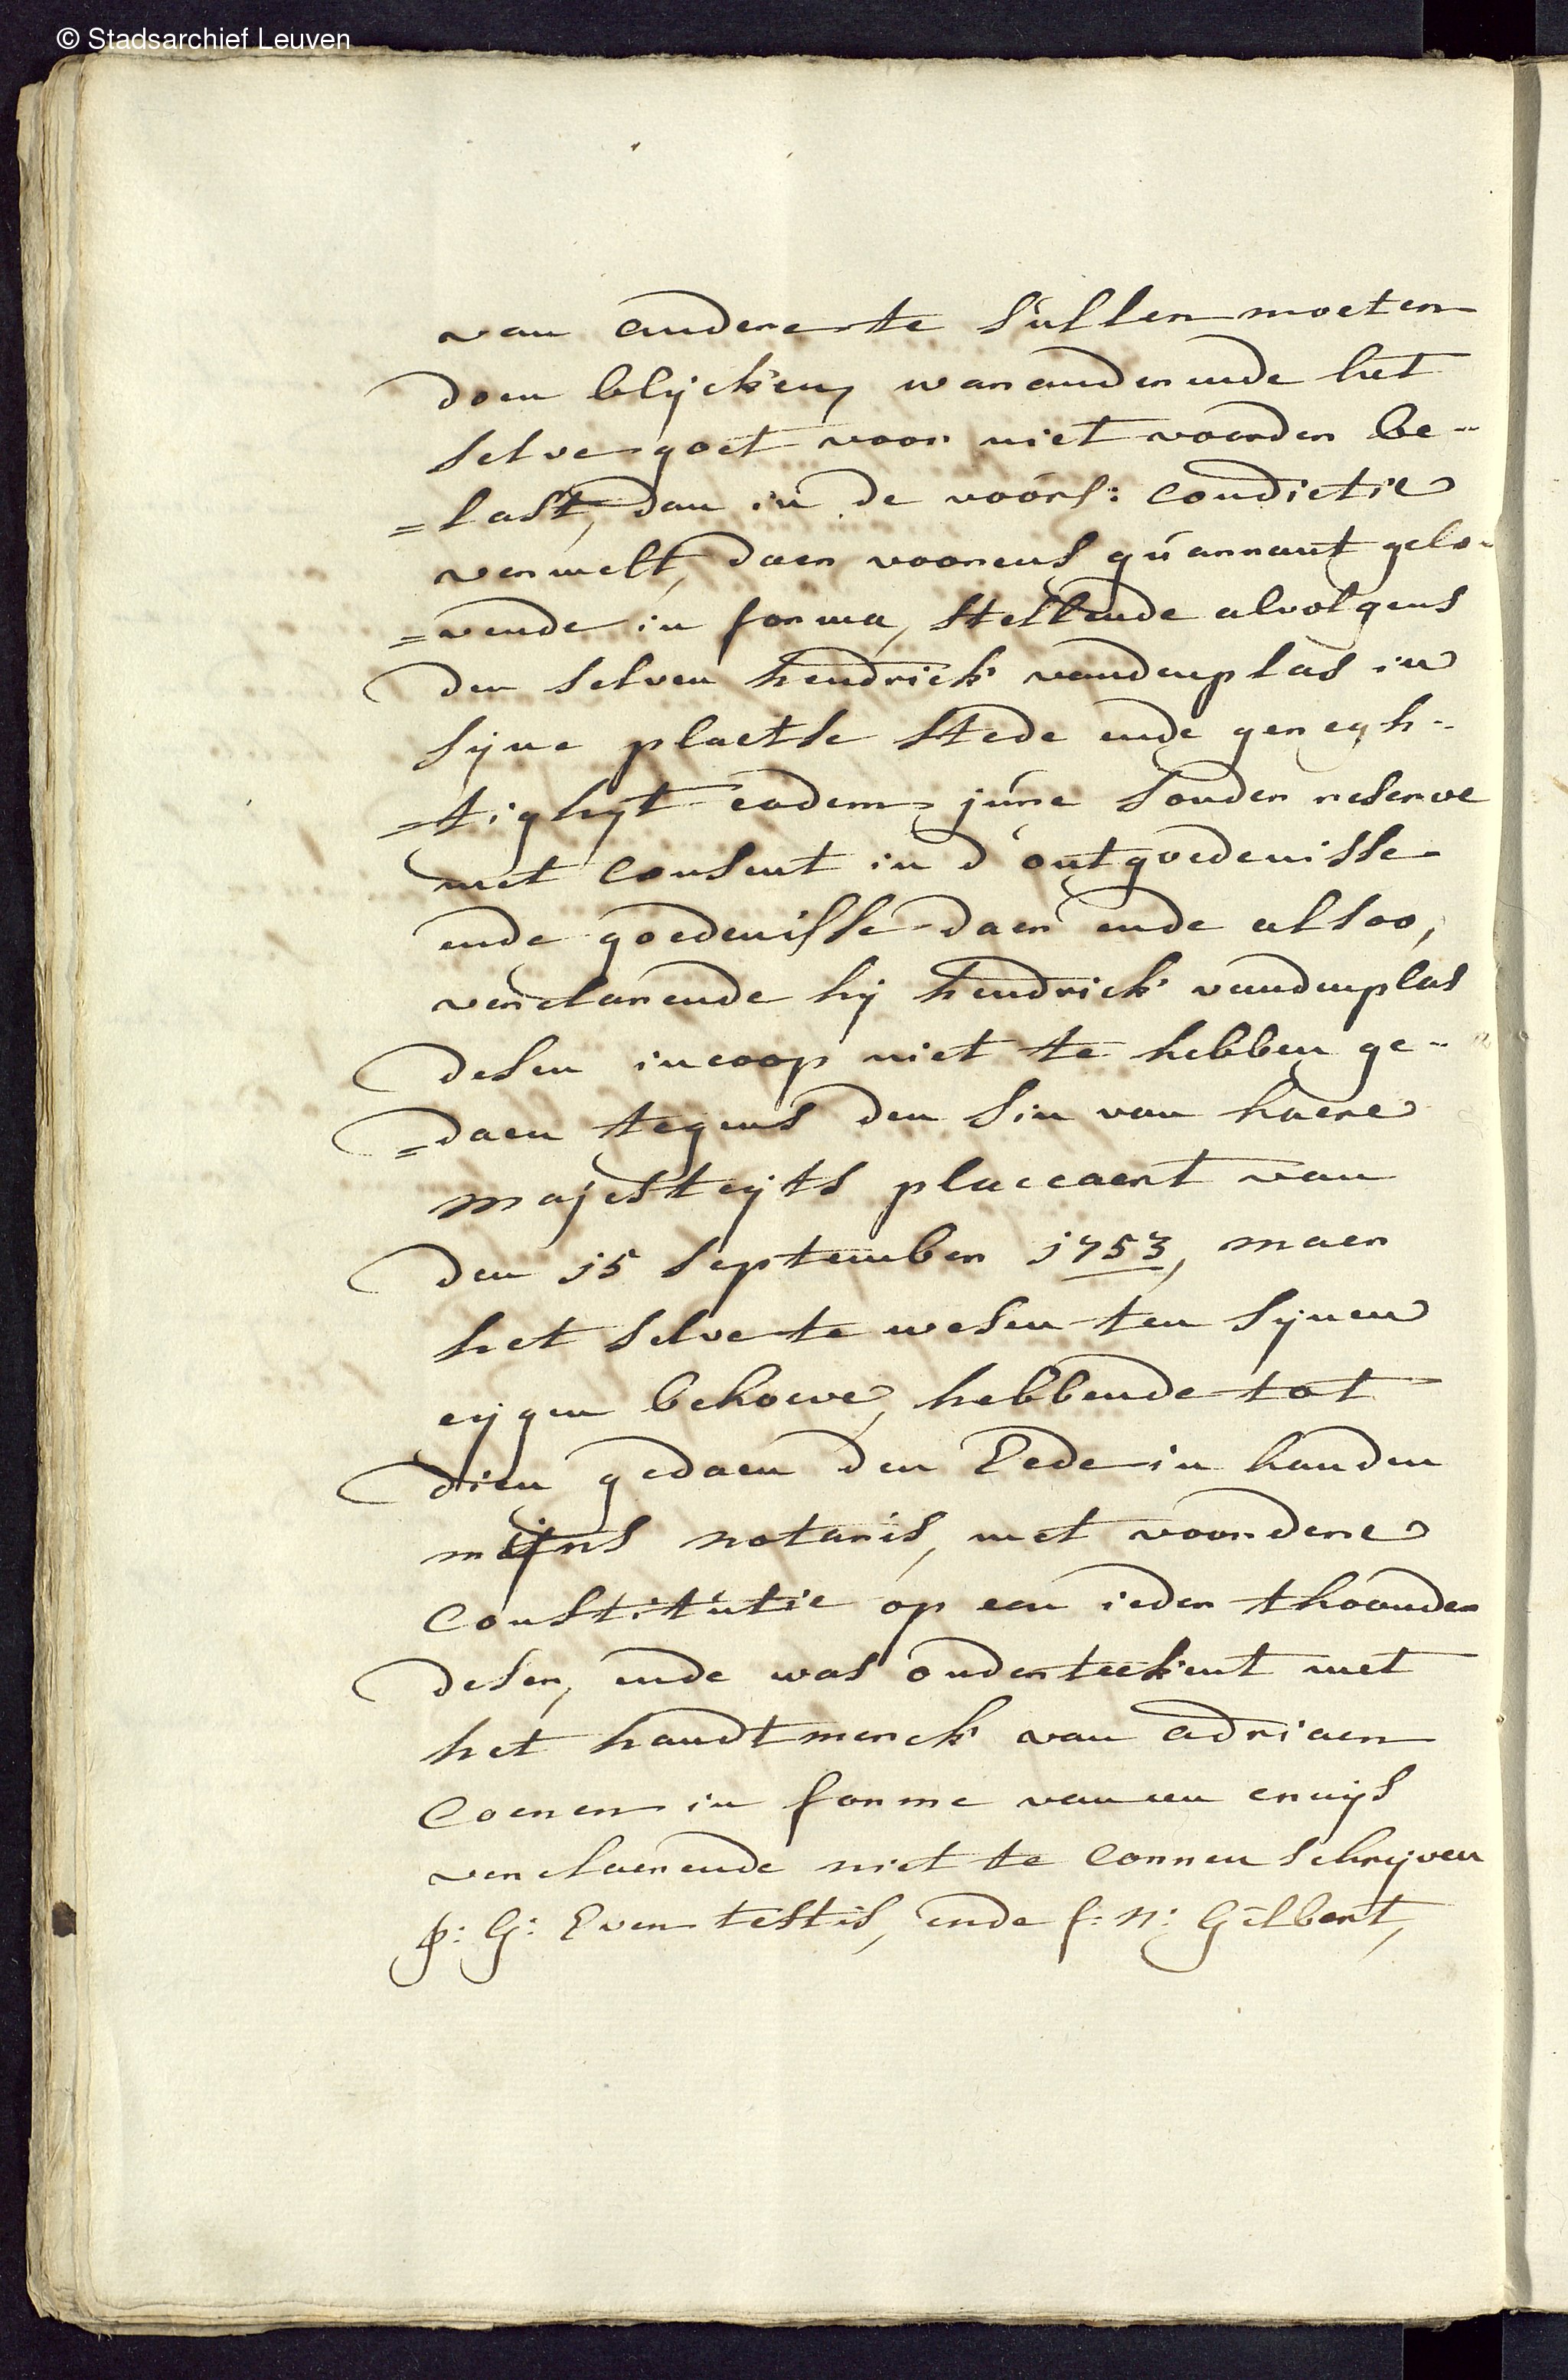 © Stadsarchief Leuven
van andere te sullen moeten
doen blijcken, waranderende het
selve goet voor niet voorder be-
=last, dan in de voors: condictie
vermelt, daer voorens quarrant gelo-
=vende in forma, stellende alvolgens
den selven hendrick vandenplas in
sijne plaetse stede ende geregh-
=tighyt eodem jure sonder reserve
met consent in d'ontgoedenisse
ende goedenisse daer ende alsoo,
verclarende hij hendrick vandenplas
desen incoop niet te hebben ge-
=daen tegens den sin van haere
majesteyts placcaert van
den 15 september 1753, maer
het selve te wesen ten sijnen
eijgen behoeve, hebbende tot
dien gedaen den Eede in handen
mijns notaris, met voordere
constitutie op een ieder thoonder
deser, ende was onderteekent met
het handtmerck van adriaen
Coenen in forme van een cruijs
verclaerende niet te connen schrijven
p: G: Even testis, ende f: N: Gilbert,